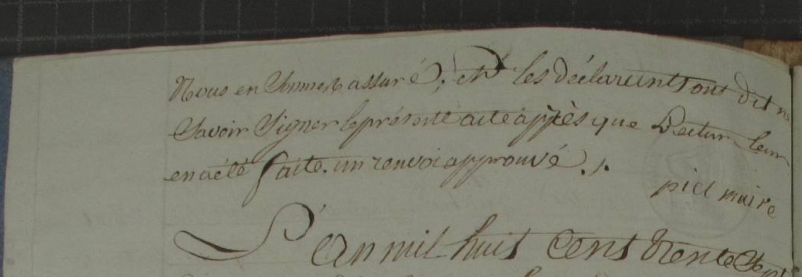 Nous en Sommes assuré; et les déclarants ont dit n
Savoir Signer le présent acte après que Lectur leur
en a été faite. un renvoi approuvé ./.
piel maire
L'an mil huit cent trente Sept